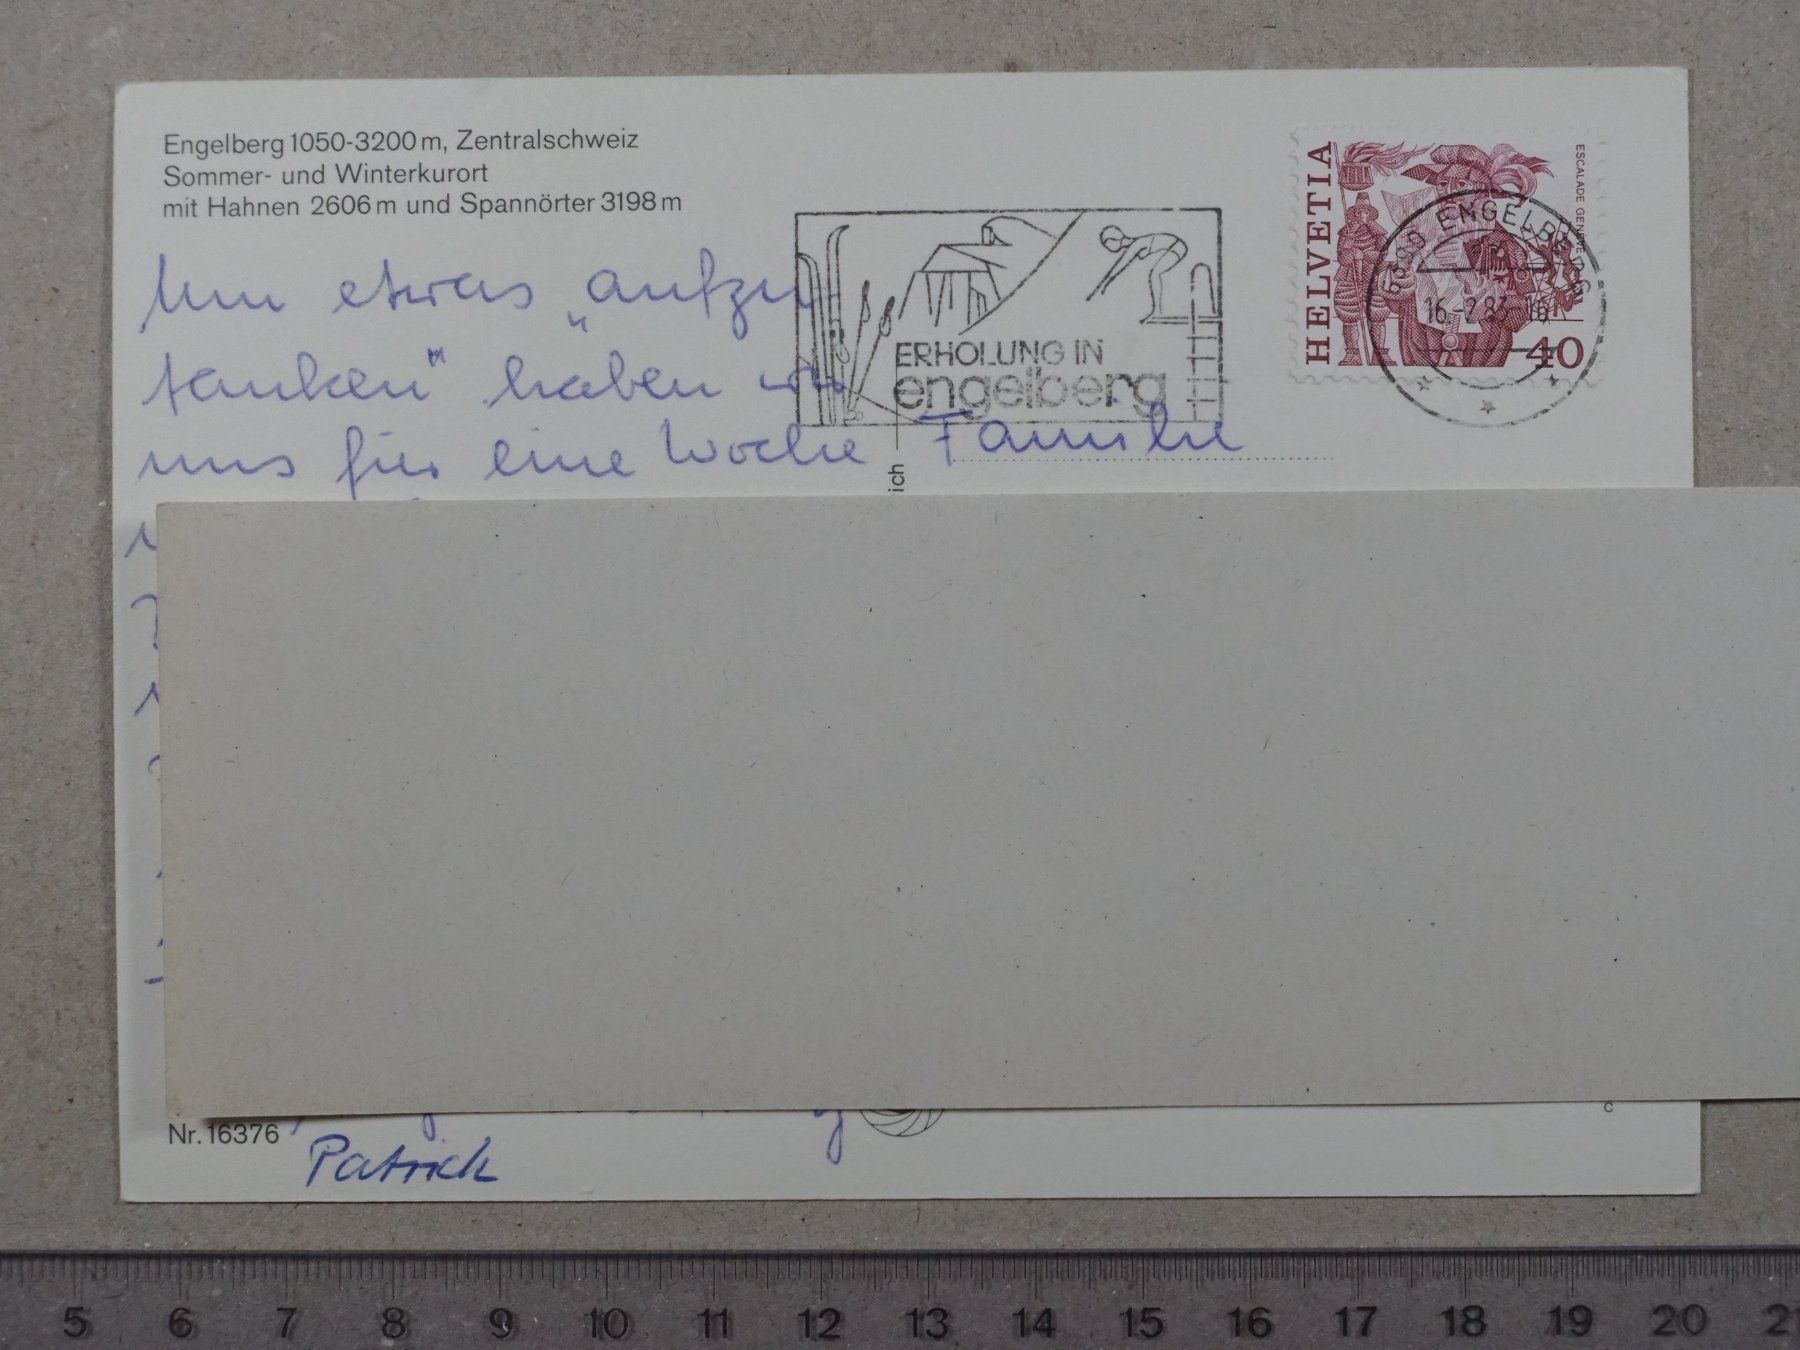 Engelberg 1050-3200 m, Zentralschweiz
Sommer- und Winterkurort
mit Hahnen 2606 m und Spannörter 3198 m
HELVETIA
ESCALADE GENÈVE
40
6390 ENGELBERG
16.-2.83-16
ERHOLUNG IN
engelberg
Um etwas „aufzu-
tanken" haben wir
uns für eine Woche
Familie
ich
Nr. 16376
Patrick
c
5 6 7 8 9 10 11 12 13 14 15 16 17 18 19 20 21